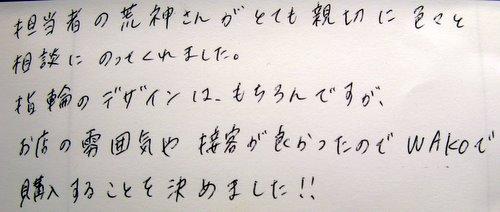 担当者の荒神さんがとても親切に色々と
相談にのってくれました。
指輪のデザインは、もちろんですが、
お店の雰囲気や接客が良かったのでWAKOで
購入することを決めました!!